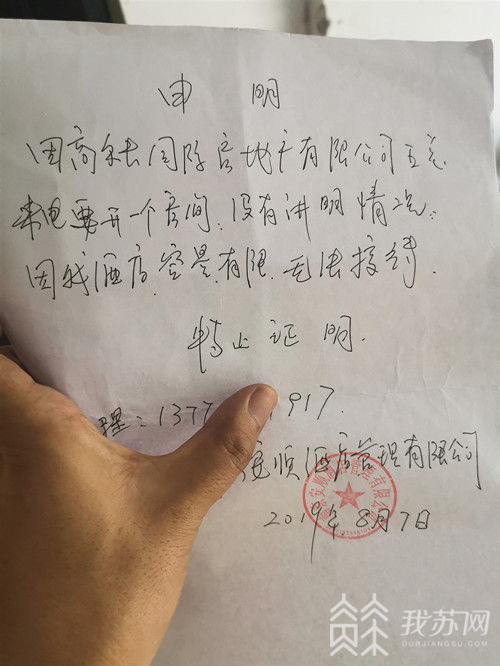 申明
因高 国际房地产有限公司王总
来电要开一个房间,没有讲明情况.
因我酒店.容量.有限.无法接待.
特止证明.
理:1377 917.
安顺酒店管理有限公司
2019年.8月7日
安顺 管理有限公司
我苏网
OURJIANGSU.COM